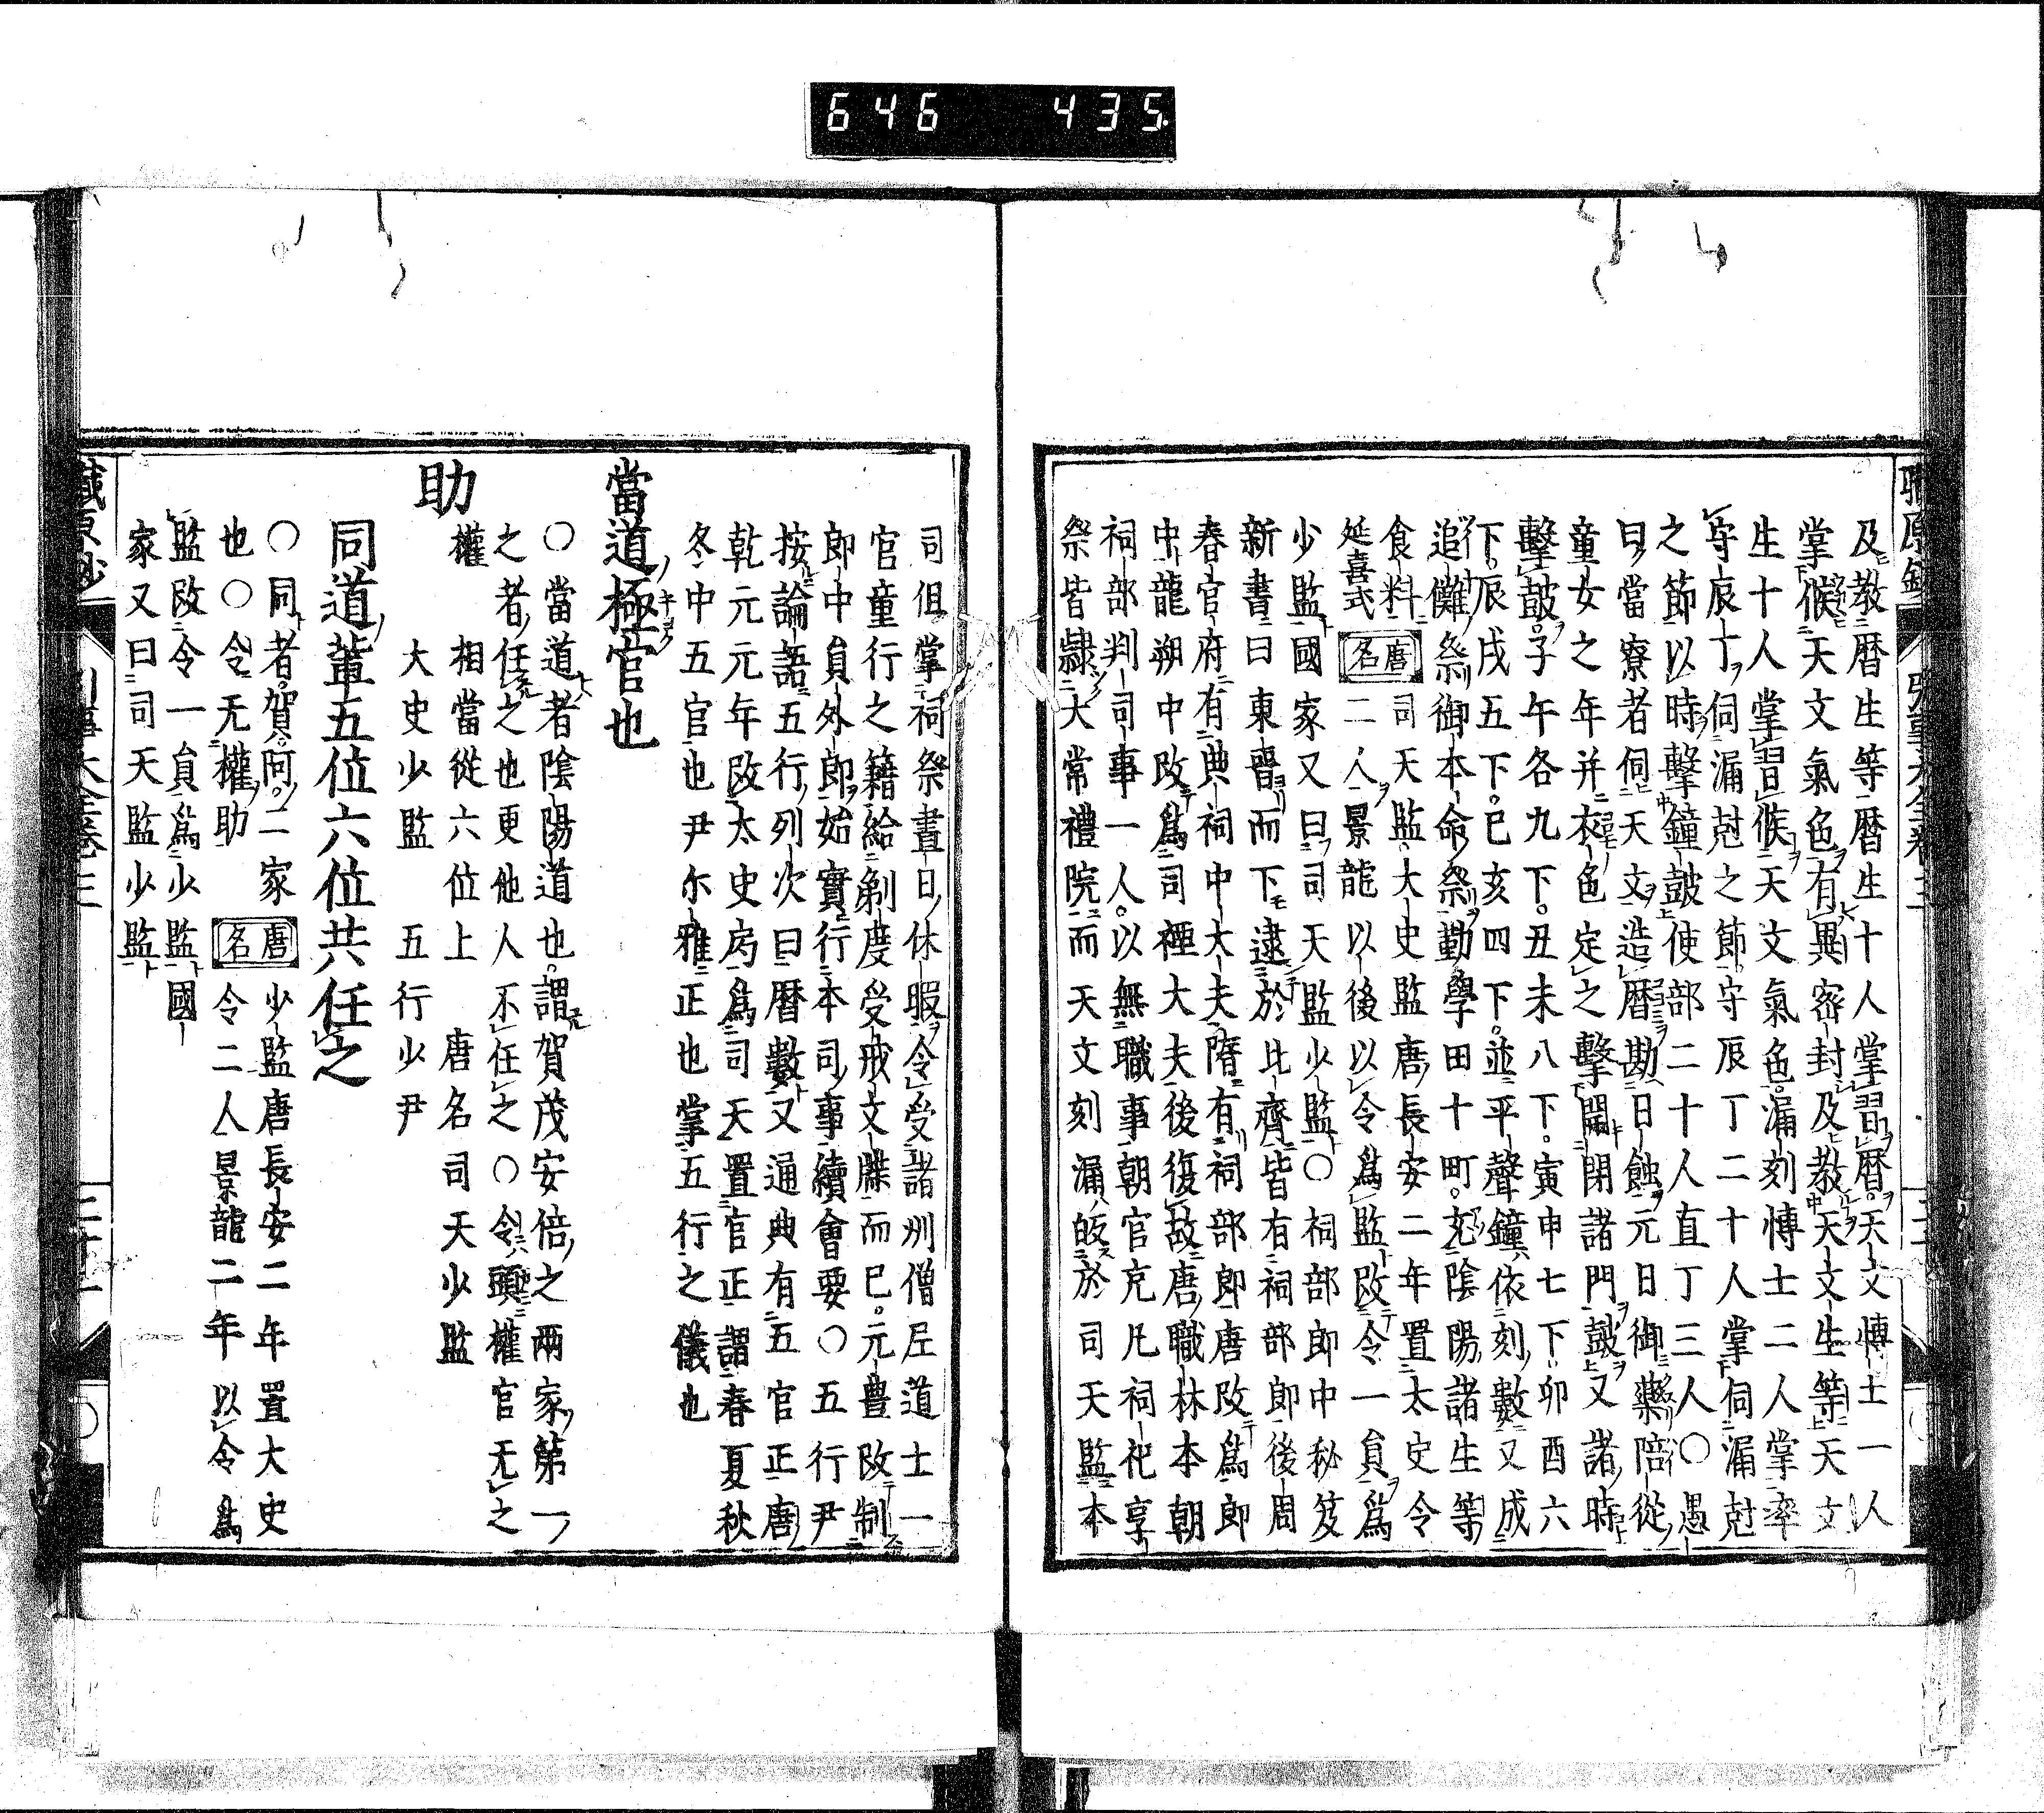 646 435
及教暦生等暦生十人掌習暦天文博士一人
掌候天文氣色有異密封及教天文生等天文
生十人掌習候天文氣色漏刻博士二人掌率
守辰丁伺漏尅之節守辰丁二十人掌伺漏尅
之節以時擊鐘鼓使部二十人直丁三人〇愚
曰當寮者伺天文造暦勘日蝕元日御藥陪從
童女之年并衣色定之擊開閉諸門鼓又諸時
擊鼓子午各九下丑未八下寅申七下卯酉六
下辰戌五下巳亥四下並平聲鐘依刻數又成
追儺祭御本命祭勤學田十町充陰陽諸生等
食料延喜式唐名司天監大史監唐長安二年置太史令
二人景龍以後以令爲監改令一負爲
少監國家又曰司天監少監〇祠部郎中秘笈
新書曰東晉而下逮於北齊皆有祠部郎後周
春官府有典祠中大夫隋有祠部郎唐改爲郎
中龍朔中改爲司禋大夫後復故唐職林本朝
祠部判司事一人以無職事朝官充凡祠祀享
祭皆隷大常禮院而天文刻漏皈於司天監本
司但掌祠祭晝日休暇令受諸州僧尼道士一
官童行之籍給剃度受戒文牒而已元豊改制
郎中負外郎始實行本司事續會要〇五行尹
按論語五行列次曰暦數又通典有五官正唐
乾元元年改太史局爲司天置官正謂春夏秋
冬中五官也尹尓雅正也掌五行之儀也
當道極官也
〇當道者陰陽道也謂賀茂安倍之兩家第一
之者任之也更他人不任之〇令頭權官无之
助
權 相當從六位上 唐名司天少監
大史少監 五行少尹
同道輩五位六位共任之
〇同者賀阿二家
也〇令无權助 唐名 少監唐長安二年置大史
令二人景龍二年以令爲
監改令一負爲少監國
家又曰司天監少監